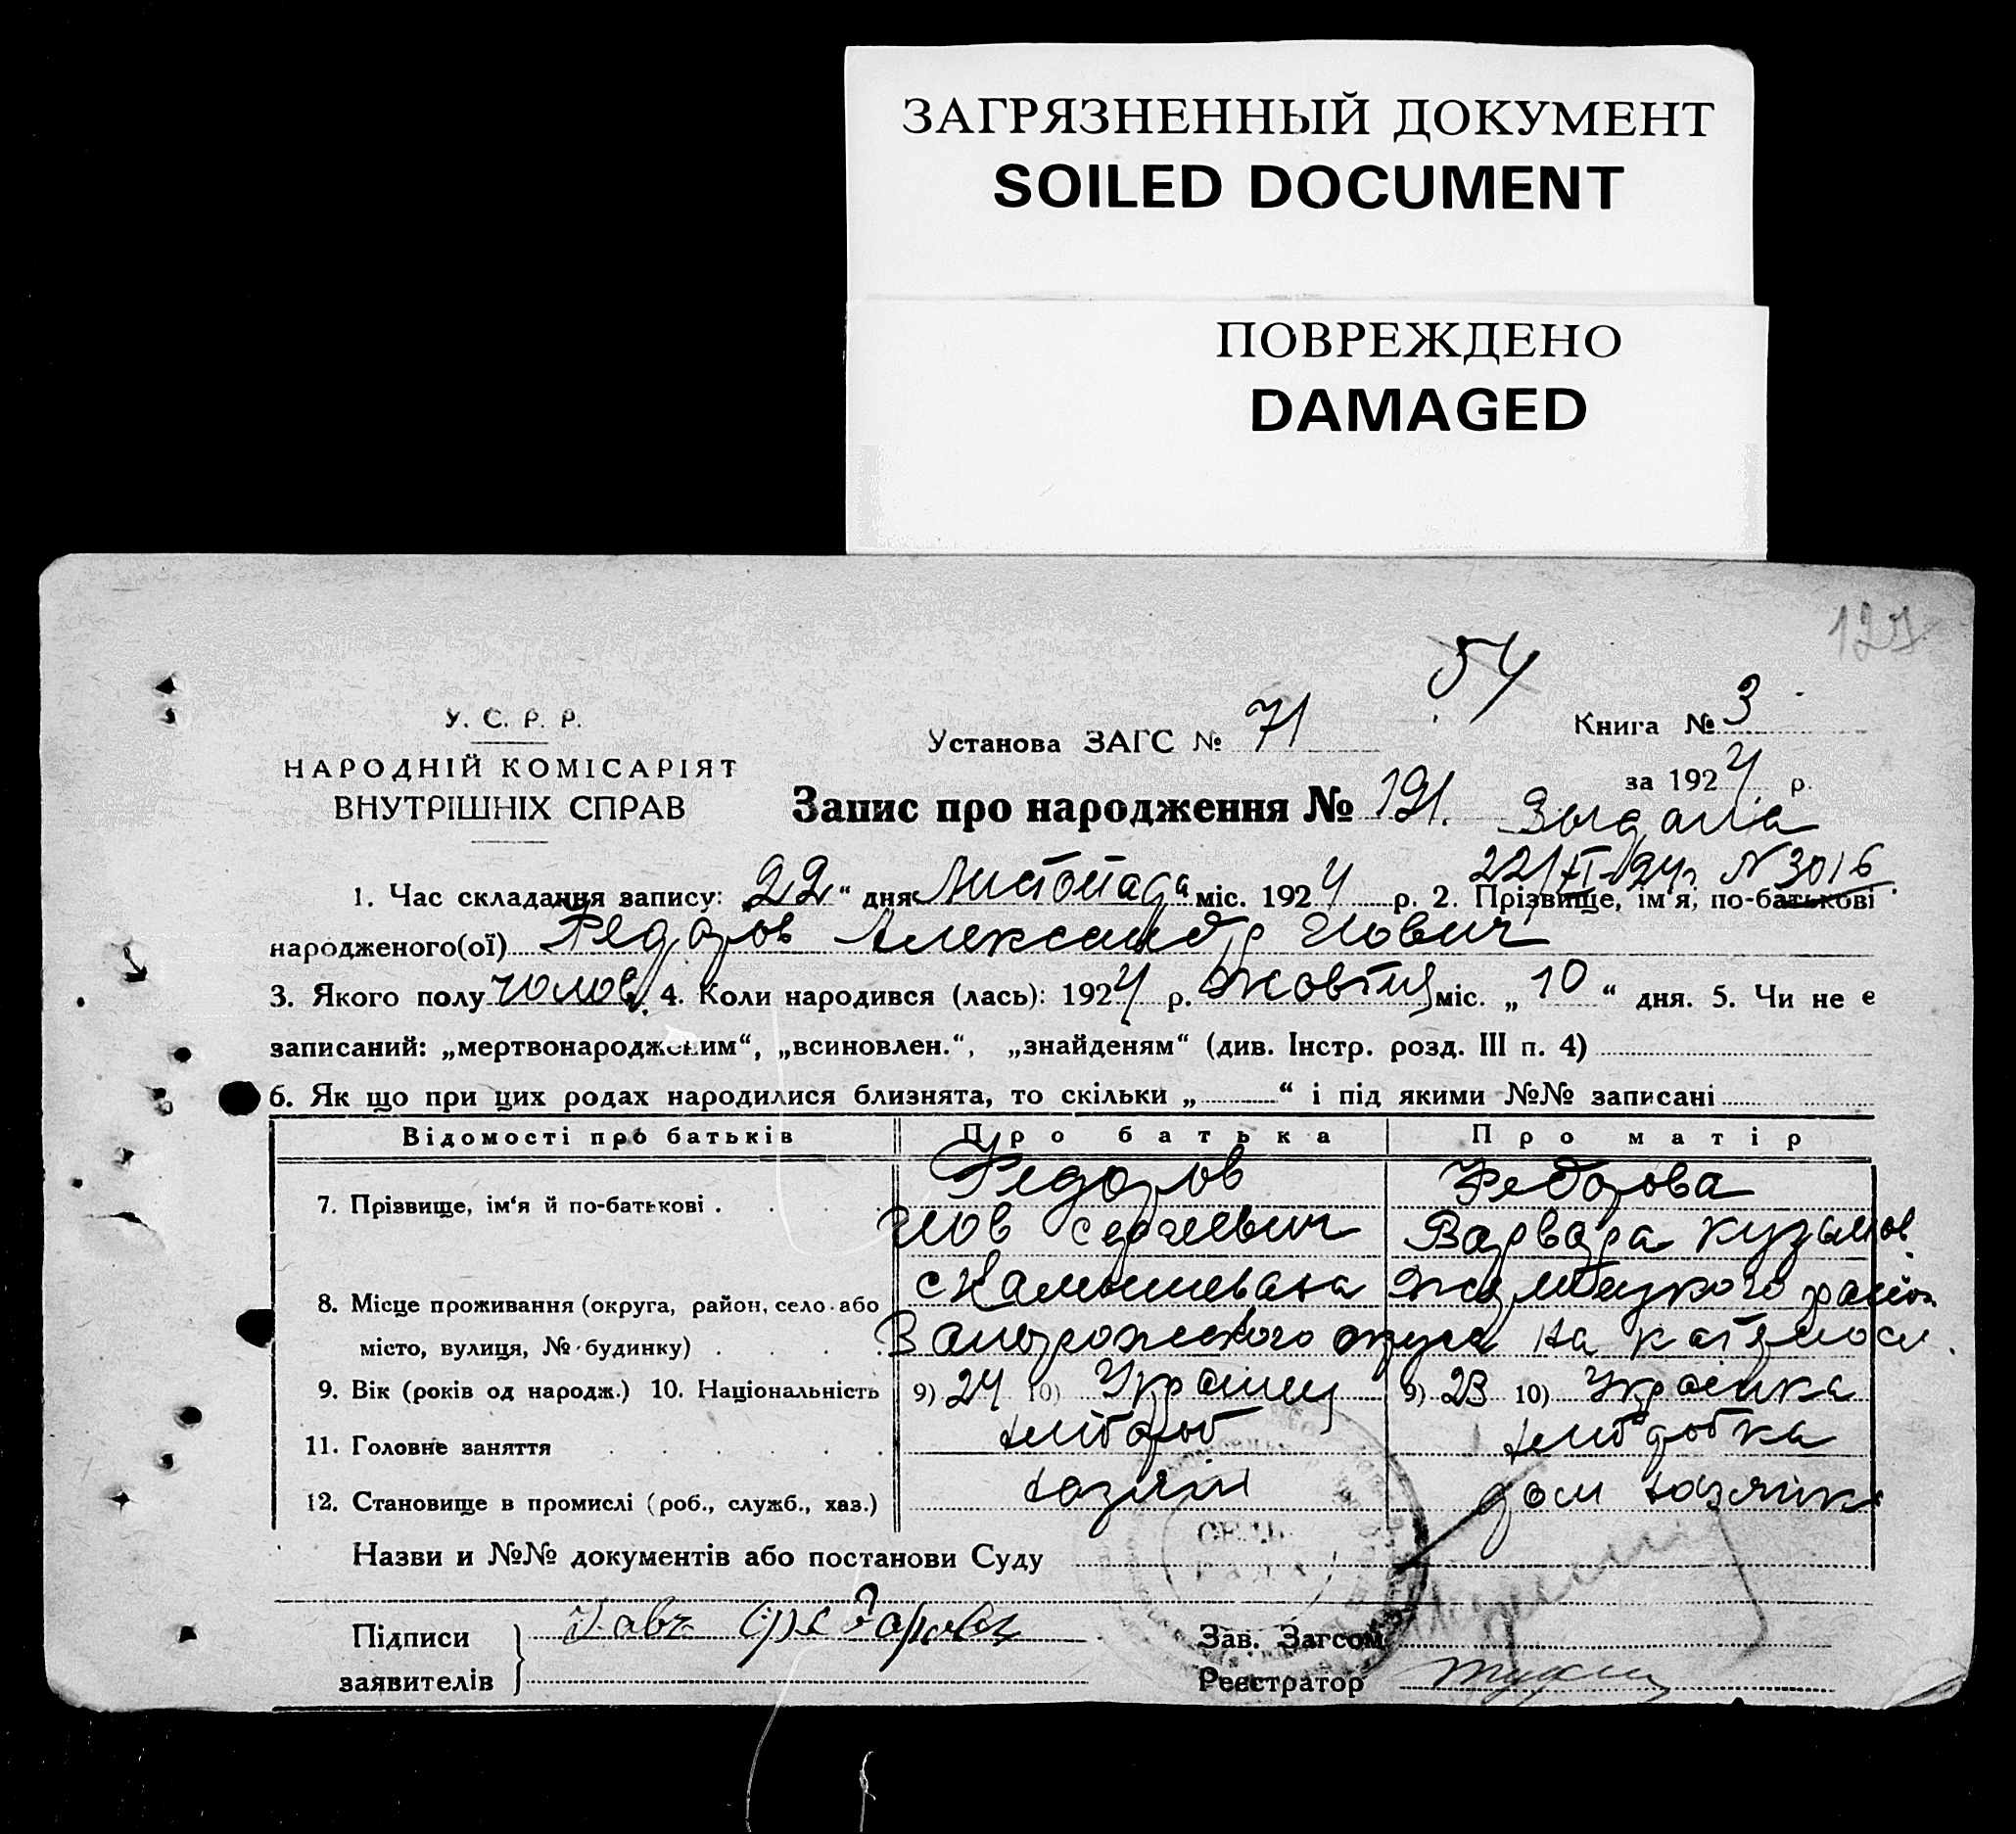 ЗАГРЯЗНЕННЫЙ ДОКУМЕНТ
SOILED DOCUMENT
ПОВРЕЖДЕНО
DAMAGED
54
У. С. Р. Р.
НАРОДНІЙ КОМІСАРІЯТ
ВНУТРІШНІХ СПРАВ
Установа ЗАГС № 71
Книга № 3
за 1924 р.
Запис про народження № 191.
22/XI-24 г N 3016
1. Час складання запису: „22“ дня Листопада міс. 1924 р. 2. Прізвище, ім'я, по-батькові
народженого(ої) Федоров Александр Иович
3. Якого полу чолов. 4. Коли народився (лась): 1924 р. Жовтня міс. „10“ дня. 5. Чи не є
записаний: „мертвонародженим“, „всиновлен.“, „знайденям“ (див. Інстр. розд. III п. 4)
6. Як що при цих родах народилися близнята, то скільки „ “ і під якими №№ записані
Відомості про батьків Про батька Про матір
7. Прізвище, ім'я й по-батькові . Федоров Федорова
Иов Сергеевич Варвара Кузьмов.
8. Місце проживання (округа, район, село або с Камышеваха район
місто, вулиця, № будинку) Запорожского округа на
9. Вік (років од народж.) 10. Національність 9) 24 10) Українец 9) 23 10) Українка
11. Головне заняття хлібороб хліборобка
12. Становище в промислі (роб., служб., хаз.) хазяін дом хазяйка
Назви и №№ документів або постанови Суду
Підписи
заявителів
Зав. Загсом
Реєстратор